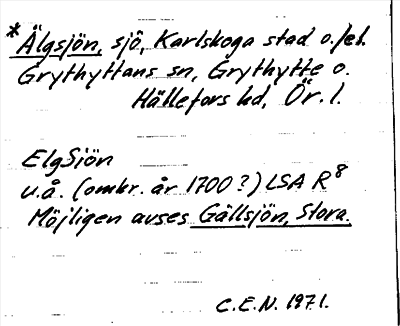 *Älgsjön, sjö, Karlskoga stad o./el.
Grythyttans sn, Grythytte o.
Hällefors hd, Ör. l.
ElgSiön
u.å. (omkr. år 1700?) LSA R8
Möjligen avses Gällsjön, Stora.
C.E.N. 1971.